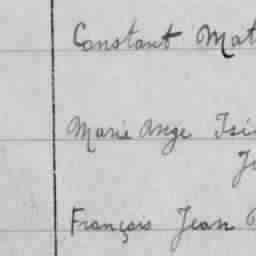 Constant Mat
Marie Ange Isi
Is
François Jean